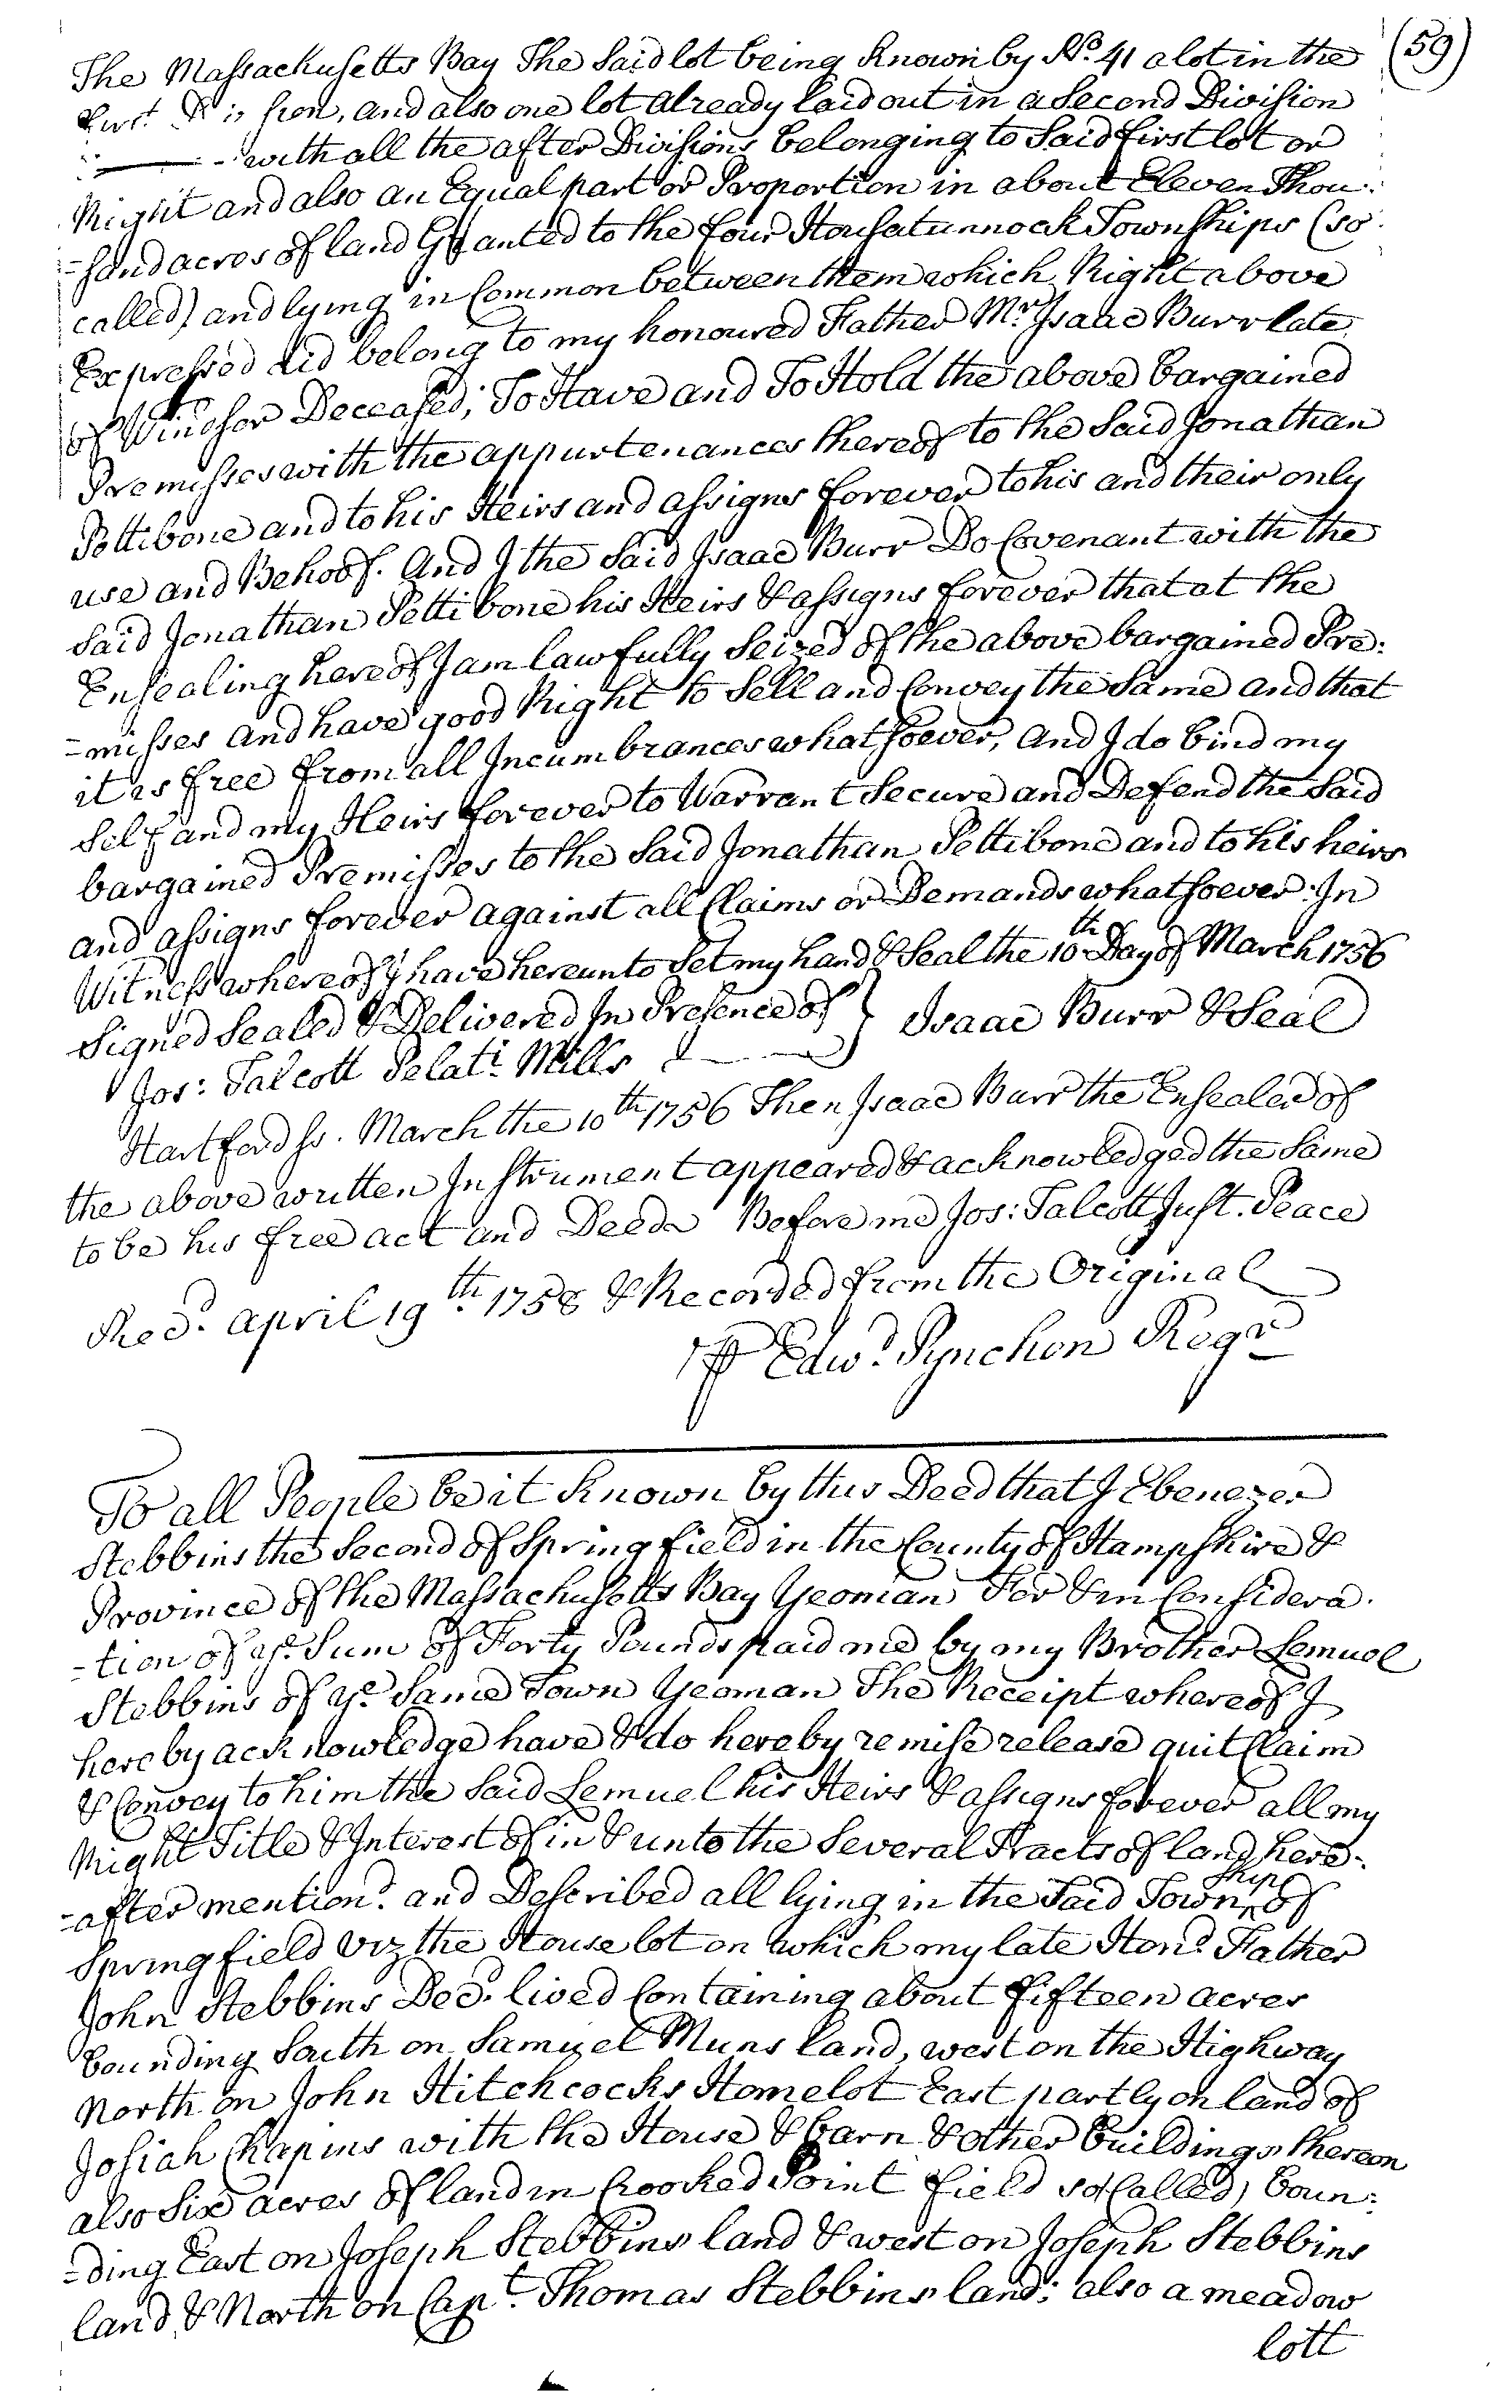 (59)
The Massachusetts Bay The Said lot being Known by No. 41 a lot in the
First Division, and also one lot already laid out in a Second Division
with all the after Divisions belonging to Said first lot or
Right and also an Equal part or Proportion in about Eleven Thou:
=sand acres of land Granted to the four Housatunnock Townships (so
called) and lying in Common between them which Right above
Expressed did belong to my honoured Father Mr. Isaac Burr late
of Windsor Deceased; To Have and To Hold the above bargained
Premisses with the appurtenances thereof to the Said Jonathan
Pettibone and to his Heirs and assigns forever to his and their only
use and Behoof. And I the Said Isaac Burr Do Covenant with the
Said Jonathan Pettibone his Heirs & assigns forever that at the
Ensealing hereof I am lawfully Seized of the above bargained Pre:
=misses and have good Right to Sell and Convey the Same and that
it is free from all Incumbrances whatsoever, and I do bind my
Self and my Heirs forever to Warrant Secure and Defend the Said
bargained Premisses to the Said Jonathan Pettibone and to his heirs
and assigns forever against all Claims or Demands whatsoever: In
Witness whereof I have hereunto Set my hand & Seal the 10th Day of March 1756
Signed Sealed & Delivered In Presence of } Isaac Burr & Seal
Jos: Talcott Pelati: Mills
Hartford ss. March the 10th 1756 Then Isaac Burr the Ensealer of
the above written Instrument appeared & acknowledged the Same
to be his free act and Deed Before me Jos: Talcott Just. Peace
Recd. april 19th. 1758 & Recorded from the Original
P Edwd. Pynchon Regr
To all People be it Known by this Deed that I Ebenezer
Stebbins the Second of Springfield in the County of Hampshire &
Province of the Massachusetts Bay Yeoman For & in Considera.
=tion of ye. Sum of Forty Pounds paid me by my Brother Lemuel
Stebbins of ye. Same Town Yeoman The Receipt whereof I
hereby acknowledge have & do hereby remise release quit Claim
& Convey to him the Said Lemuel his Heirs & assigns forever all my
Right Title & Interest of in & unto the Several Tracts of land here=
=after mentiond. and Described all lying in the Said Township of
Springfield viz the House lot on which my late Hond. Father
John Stebbins Decd. lived Containing about fifteen acres
bounding South on Samuel Muns land, west on the Highway
North on John Hitchcocks Homelot East partly on land of
Josiah Chapins with the House & barn & other buildings thereon
also Six acres of land in Crooked Point field so Called) boun:
=ding East on Joseph Stebbins land & west on Joseph Stebbins
land & North on Capt. Thomas Stebbins land; also a meadow
lott